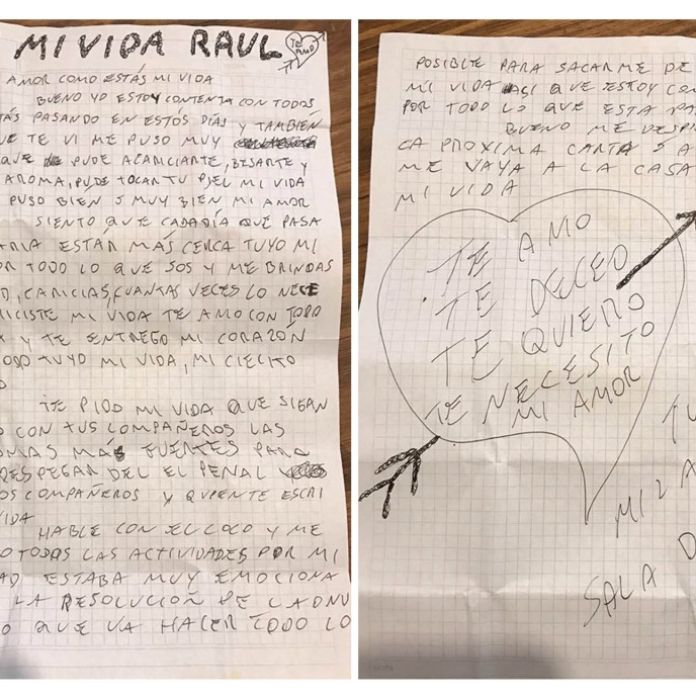 MI VIDA RAUL TE AMO
AMOR COMO ESTÁS MI VIDA
BUENO YO ESTOY CONTENTA CON TODAS
ÁS PASANDO EN ESTOS DÍAS Y TAMBIÉN
UE TE VI ME PUSO MUY
QUE PUDE ACARICIARTE, BESARTE Y
AROMA, PUDE TOCAR TU PIEL MI VIDA
PUSO BIEN Y MUY BIEN MI AMOR
SIENTO QUE CADA DÍA QUE PASA
ARIA ESTAR MÁS CERCA TUYO MI
OR TODO LO QUE SOS Y ME BRINDAS
D, CARICIAS, CUANTAS VECES LO NECE
HICISTE MI VIDA TE AMO CON TODO
A Y TE ENTREGO MI CORAZON
TODO TUYO MI VIDA, MI CIECITO
O
TE PIDO MI VIDA QUE SIGAN
O CON TUS COMPAÑEROS LAS
MÁS FUERTES PARA
RESPEGAR DEL EL PENAL
OS COMPAÑEROS Y QUIENTE ESCRI
VIDA
HABLE CON EL COCO Y ME
O TODAS LAS ACTIVIDADES POR MI
AD ESTABA MUY EMOCIONA
LA RESOLUCIÓN DE LA DNU
O QUE VA HACER TODO LO
POSIBLE PARA SACARME DE
MI VIDA ASI QUE ESTOY CON
POR TODO LO QUE ESTA PA
BUENO ME DESPI
CA PROXIMA CARTA O A
ME VAYA A LA CASA
MI VIDA
TE AMO
TE DECEO
TE QUIERO
TE NECESITO
MI AMOR
TU
MILA
SALA D